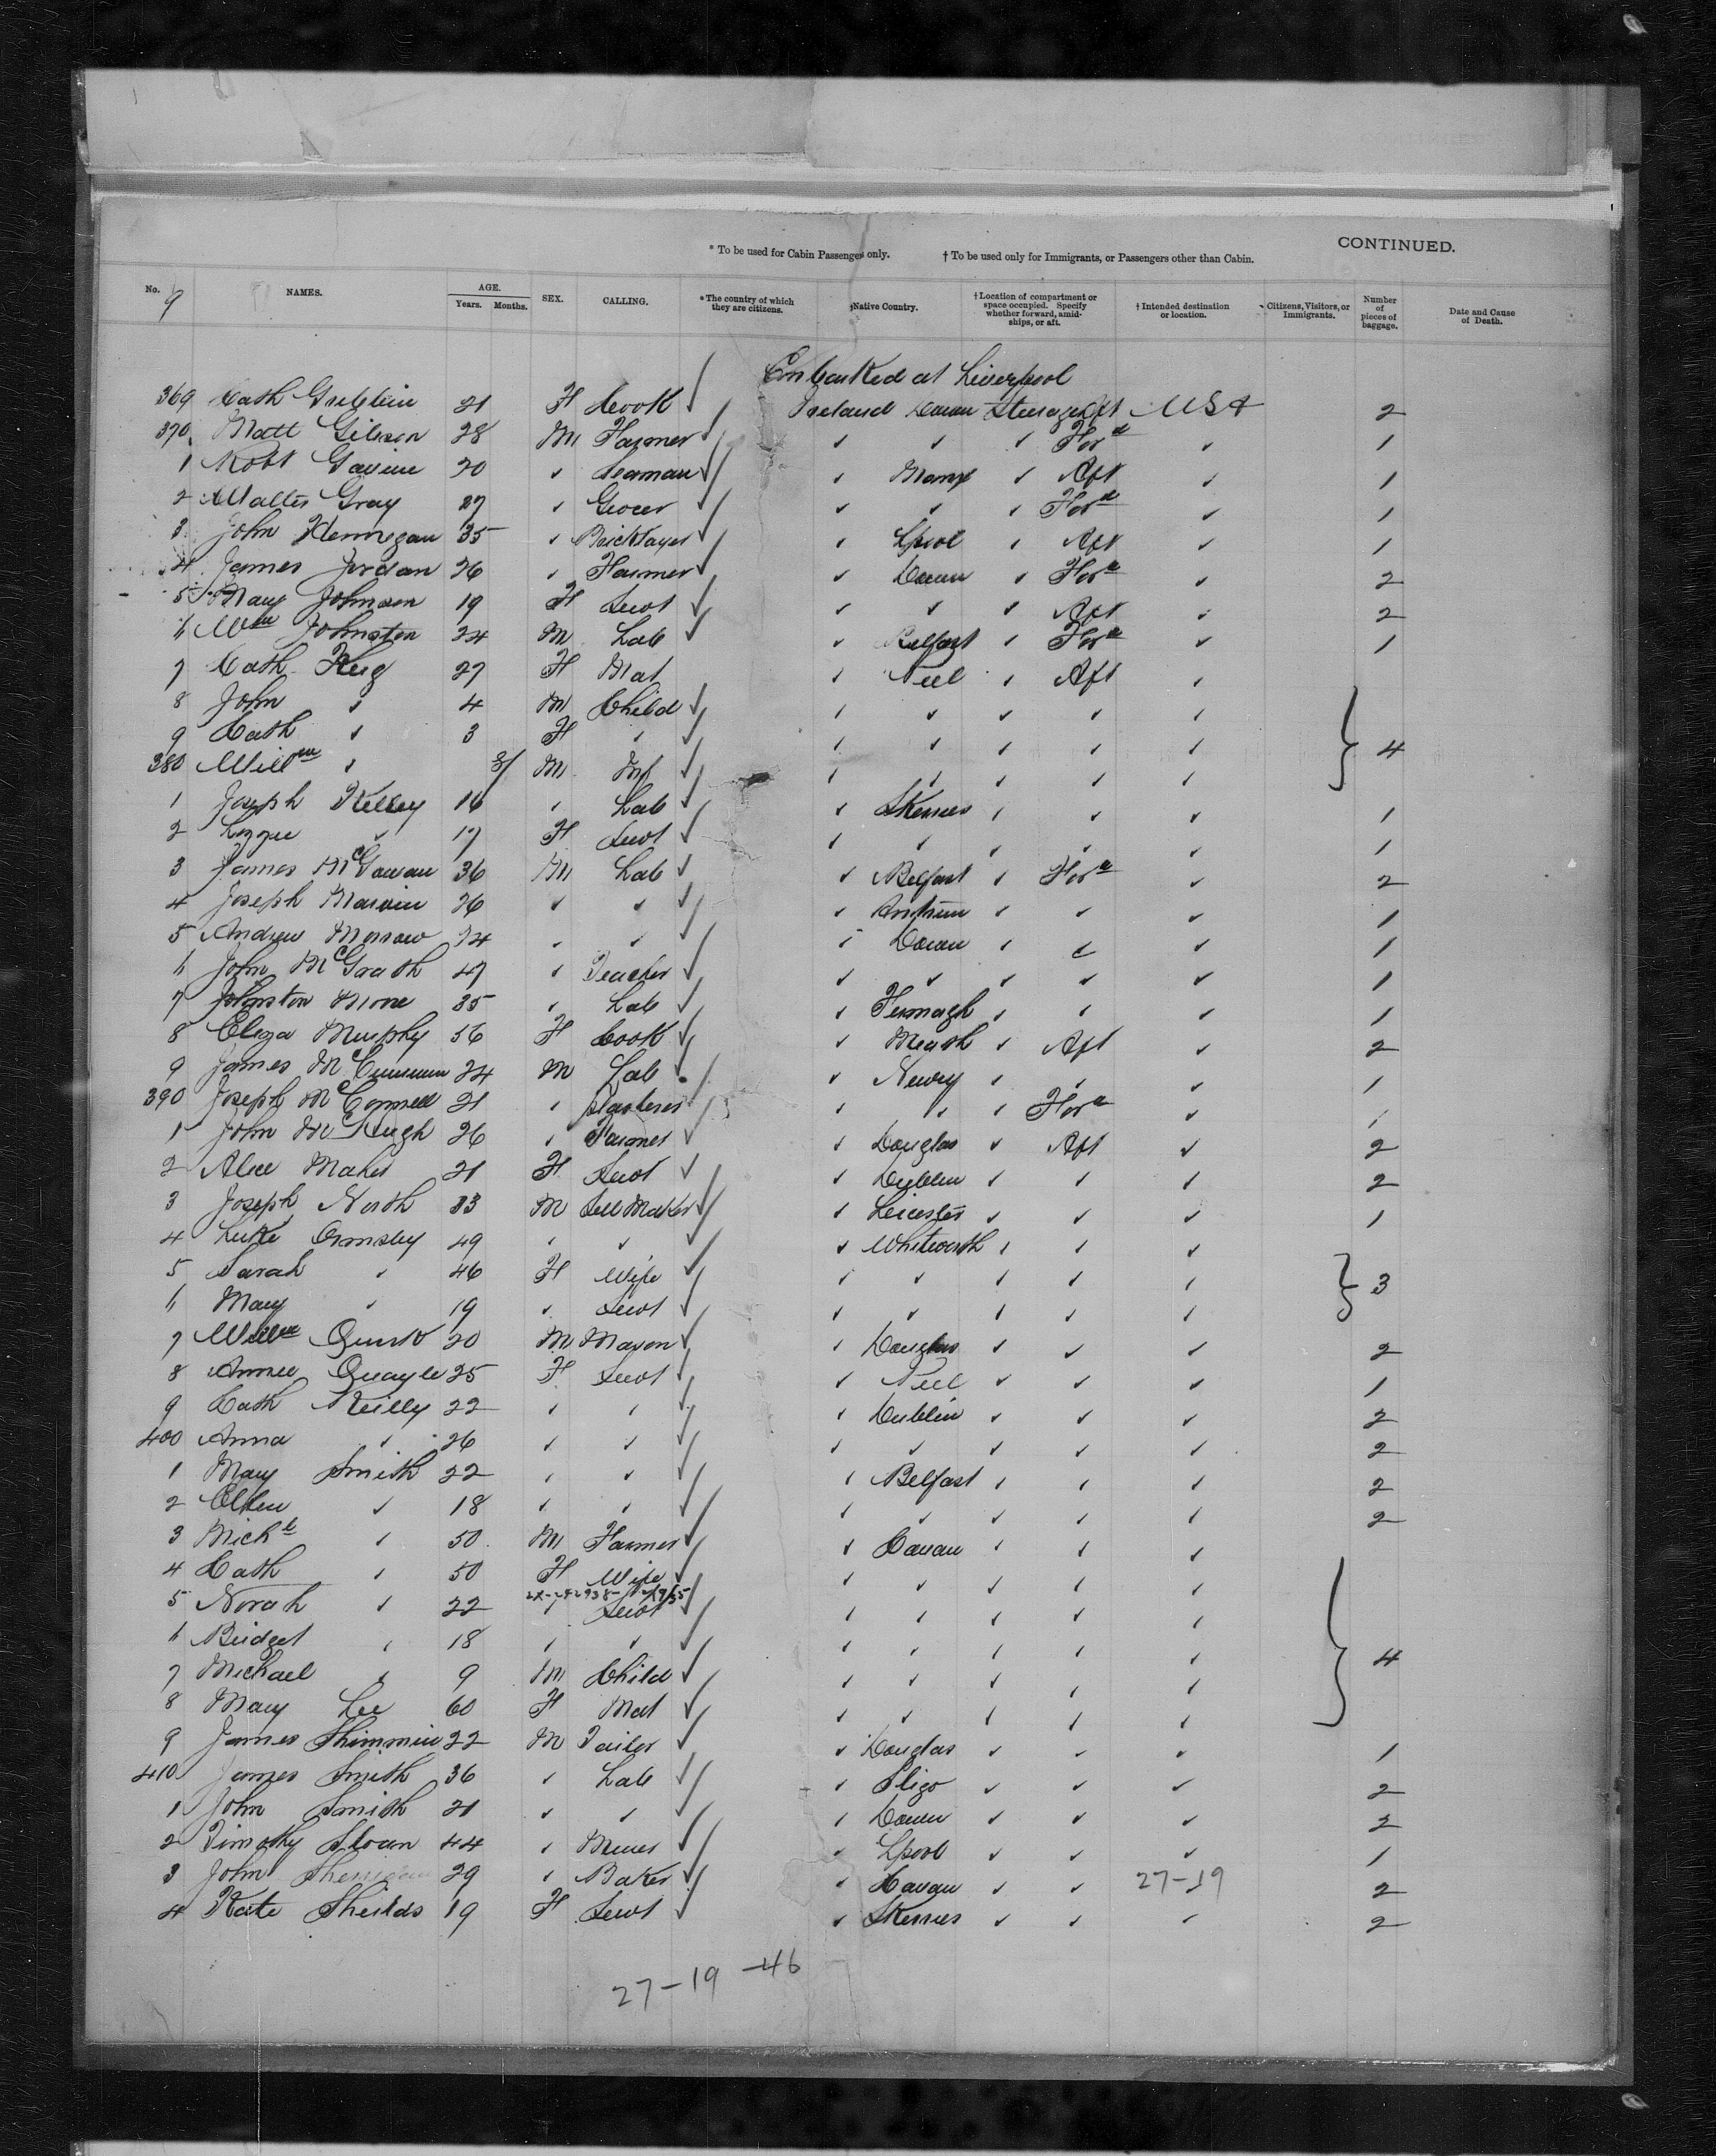 CONTINUED.
* To be used for Cabin Passenges only. † To be used only for Immigrants, or Passengers other than Cabin.
No. NAMES. AGE. Years. Months. SEX. CALLING. *The country of which they are citizens. †Native Country. †Location of compartment or space occupied. Specify whether forward, amidships, or aft. †Intended destination or location. Citizens, Visitors, or Immigrants. Number of pieces of baggage. Date and Cause of Death.
9
Embarked at Liverpool
369 Cath Gribbin 21 F Cook ✓ Ireland Down Steerage Aft USA 2
370 Matt Gibson 28 M Farmer ✓ ✓ ✓ ✓ For^d ✓ 1
1 Robt 20 ✓ Seaman ✓ ✓ Manx ✓ Aft ✓ 1
2 Walter Gray 27 ✓ Grocer ✓ ✓ ✓ ✓ For^d ✓ 1
3 John Hennegan 35 ✓ Bricklayer ✓ ✓ Lpool ✓ Aft ✓ 1
4 James Jordan 26 ✓ Farmer ✓ ✓ Down ✓ For^d ✓ 2
5 Mary Johnson 19 F Servt ✓ ✓ ✓ ✓ Aft ✓ 2
6 Wm Johnston 24 M Lab ✓ ✓ Belfast ✓ For^d ✓ 1
7 Cath Keig 27 F Mat ✓ Peel ✓ Aft ✓
8 John ✓ 4 M Child ✓ ✓ ✓ ✓ ✓ ✓
9 Cath ✓ 3 F ✓ ✓ ✓ ✓ ✓ ✓ ✓ } 4
380 Will^m ✓ M Inf ✓ ✓ ✓ ✓ ✓ ✓
1 Joseph Kelley 16 ✓ Lab ✓ ✓ Skerries ✓ ✓ ✓ 1
2 Lizzie ✓ 17 F Servt ✓ ✓ ✓ ✓ ✓ ✓ 1
3 James McGowan 36 M Lab ✓ ✓ Belfast ✓ For^d ✓ 2
4 Joseph 26 ✓ ✓ ✓ ✓ Antrim ✓ ✓ ✓ 1
5 Andrew Morrow 24 ✓ ✓ ✓ ✓ Down ✓ ✓ ✓ 1
6 John McGrath 47 ✓ Teacher ✓ ✓ ✓ ✓ ✓ ✓ 1
7 Johnston Moore 35 ✓ Lab ✓ ✓ Fermagh ✓ ✓ ✓ 1
8 Eliza Murphy 56 F Cook ✓ ✓ Meath ✓ Aft ✓ 2
9 James 24 M Lab ✓ ✓ Newry ✓ ✓ ✓ 1
390 Joseph McConnell 21 ✓ Plasterer ✓ ✓ ✓ ✓ For^d ✓ 1
1 John McHugh 26 ✓ Farmer ✓ ✓ Douglas ✓ Aft ✓ 2
2 Alice Maher 21 F Servt ✓ ✓ Dublin ✓ ✓ ✓ 2
3 Joseph North 33 M Maker ✓ ✓ Leicester ✓ ✓ ✓ 1
4 Luke Ormsby 49 ✓ ✓ ✓ Whitworth ✓ ✓ ✓
5 Sarah ✓ 46 F Wife ✓ ✓ ✓ ✓ ✓ ✓ } 3
6 Mary ✓ 19 ✓ Servt ✓ ✓ ✓ ✓ ✓ ✓
7 Will^m Quirk 20 M Mason ✓ ✓ Douglas ✓ ✓ ✓ 2
8 Annie Quayle 25 F Servt ✓ ✓ Peel ✓ ✓ ✓ 1
9 Cath Reilly 22 ✓ ✓ ✓ ✓ Dublin ✓ ✓ ✓ 2
400 Anna ✓ 26 ✓ ✓ ✓ ✓ ✓ ✓ ✓ ✓ 2
1 Mary Smith 22 ✓ ✓ ✓ ✓ Belfast ✓ ✓ ✓ 2
2 Ellen ✓ 18 ✓ ✓ ✓ ✓ ✓ ✓ ✓ ✓ 2
3 Mich^l ✓ 50 M Farmer ✓ ✓ Cavan ✓ ✓ ✓
4 Cath ✓ 50 F Wife ✓ ✓ ✓ ✓ ✓ ✓
5 Norah ✓ 22 ✓ Servt ✓ ✓ ✓ ✓ ✓ ✓
6 Bridget ✓ 18 ✓ ✓ ✓ ✓ ✓ ✓ ✓ ✓ } 4
7 Michael ✓ 9 M Child ✓ ✓ ✓ ✓ ✓ ✓
8 Mary Lee 60 F Mat ✓ ✓ ✓ ✓ ✓ ✓
9 James Shimmin 22 M Tailor ✓ ✓ Douglas ✓ ✓ ✓ 1
410 James Smith 36 ✓ Lab ✓ ✓ Sligo ✓ ✓ ✓ 2
1 John Smith 21 ✓ ✓ ✓ ✓ Down ✓ ✓ ✓ 2
2 Timothy Sloan 44 ✓ Miner ✓ ✓ Lpool ✓ ✓ ✓ 1
3 John Sherridan 29 ✓ Baker ✓ ✓ Cavan ✓ ✓ 27-19 2
4 Kate Sheilds 19 F Servt ✓ ✓ Skerries ✓ ✓ ✓ 2
27-19-46